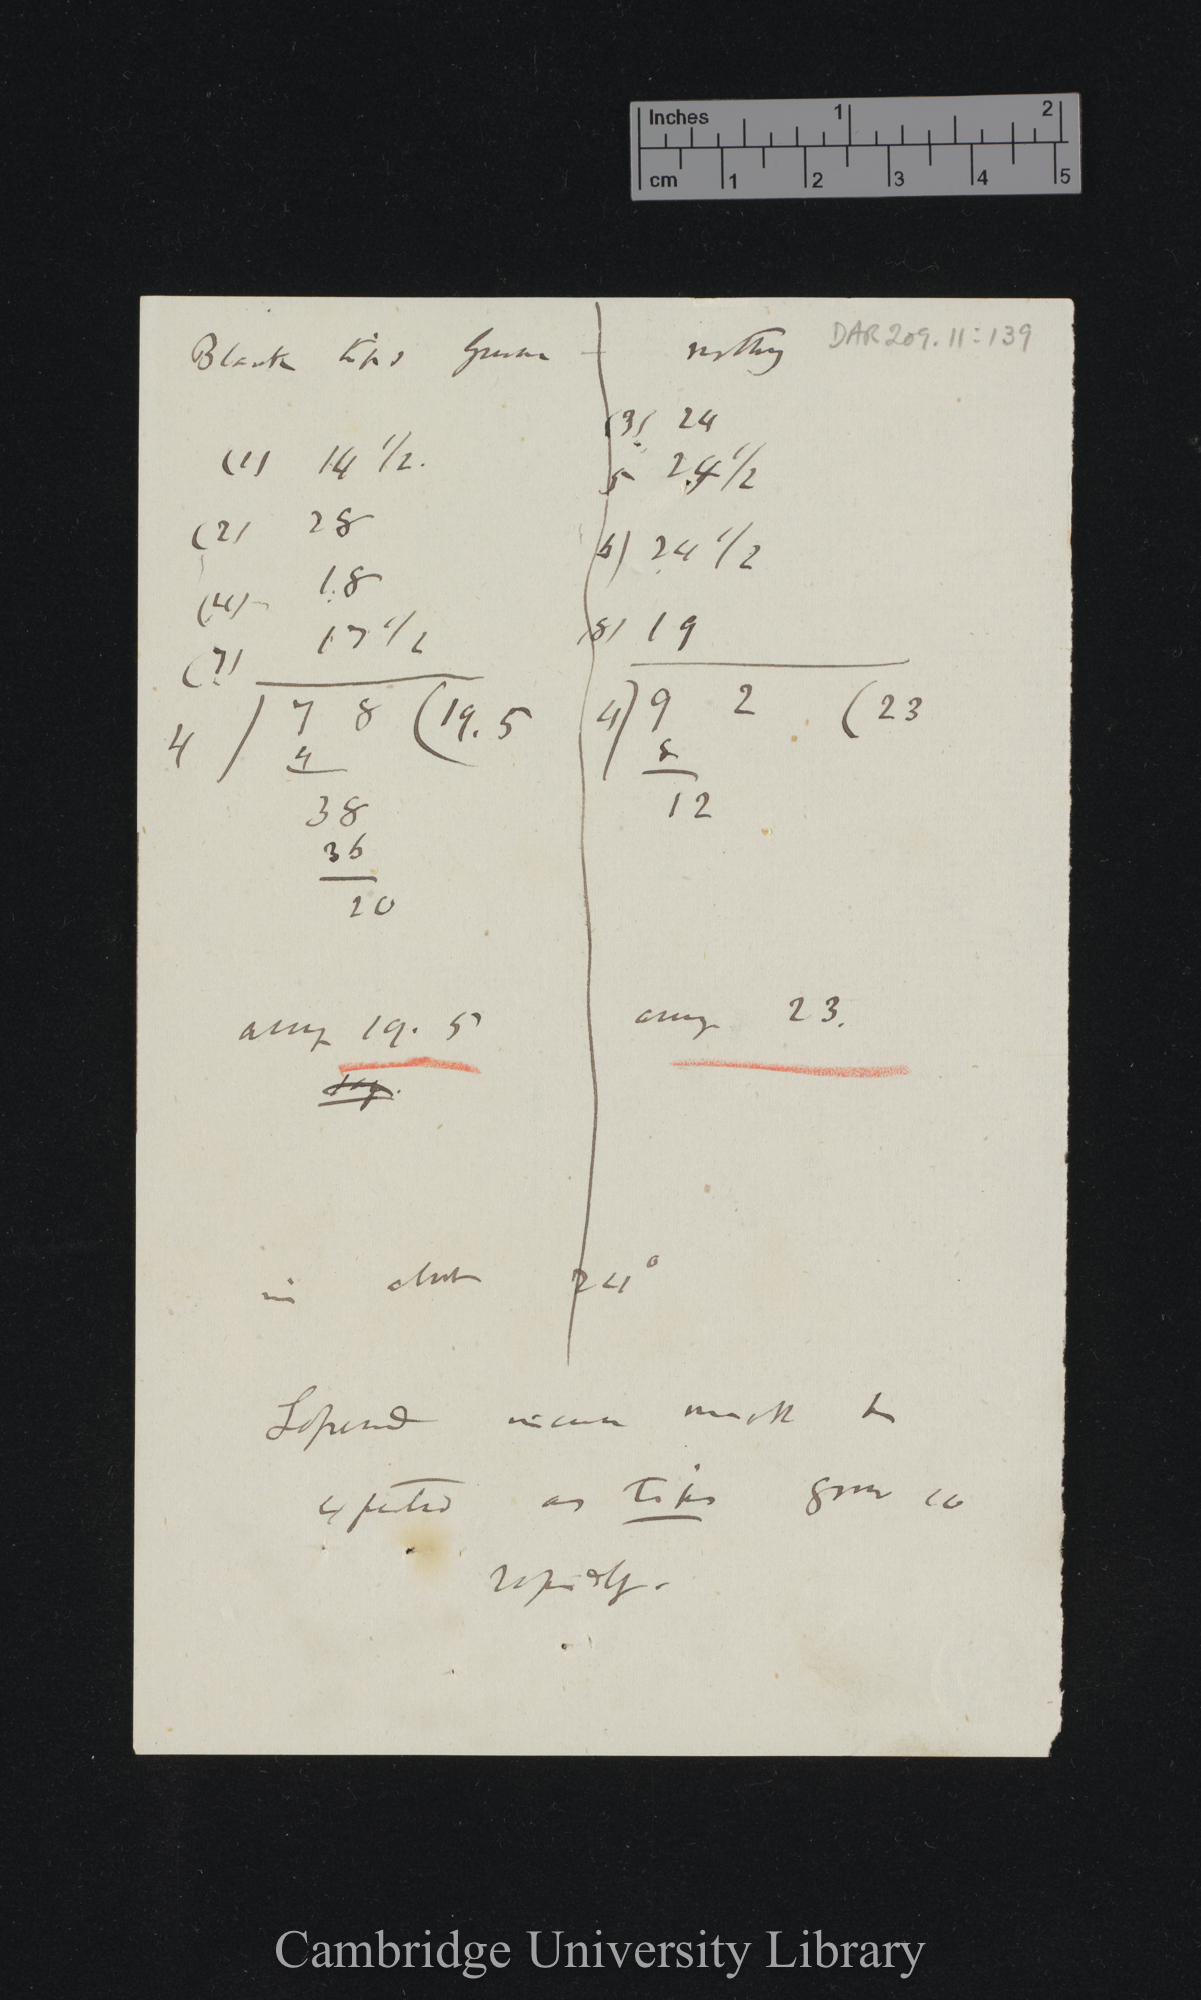 Inches 1 2
cm 1 2 3 4 5
DAR 209.11:139
Black tips
(1) 14 1/2.
(2) 28
(4) 18
(7) 17 1/2
4 ) 78 (19.5
4
38
36
20
19.5
nothing
(3) 24
5 24 1/2
6) 24 1/2
(8) 19
4) 9 2 (23
8
12
23.
in about 24°
to
as tips grow so
rapidly.
Cambridge University Library